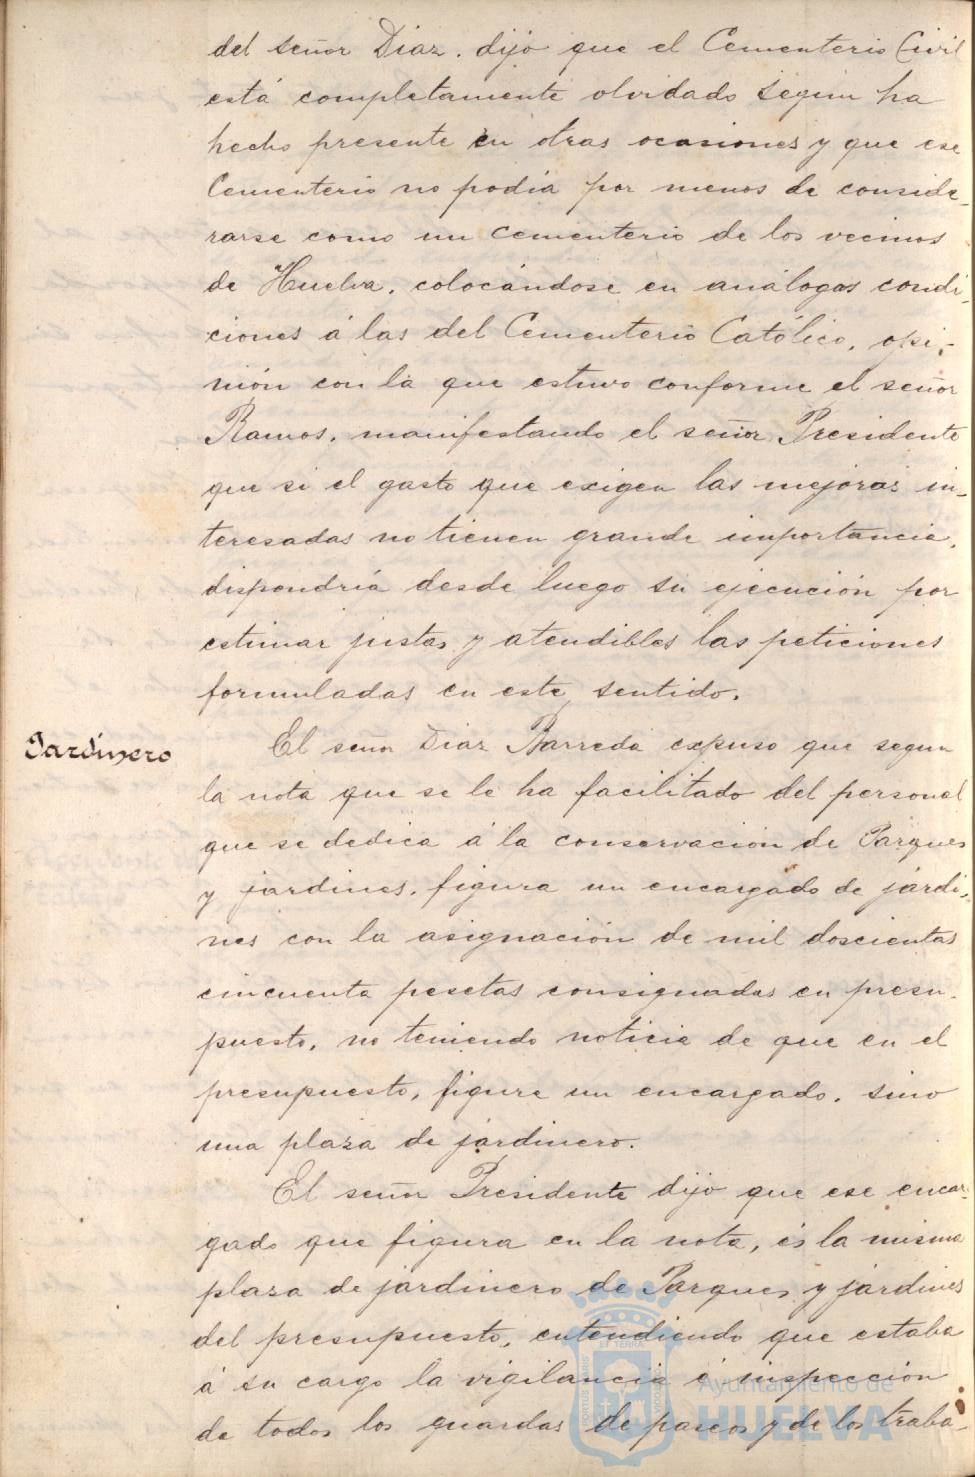 del señor Diaz. dijo que el Cementerio Civil
está completamente olvidado según ha
hecho presente en otras ocasiones y que ese
Cementerio no podía por menos de conside-
rarse como un cementerio de los vecinos
de Huelva, colocándose en análogas condi-
ciones á las del Cementerio Católico, opi-
nión con la que estuvo conforme el señor
Ramos, manifestando el señor Presidente
que si el gasto que exigen las mejoras in-
teresadas no tienen grande importancia,
dispondría desde luego su ejecución por
estimar justas y atendibles las peticiones
formuladas en este sentido.
Jardinero
El señor Diaz Barreda expuso que segun
la nota que se le ha facilitado del personal
que se dedica á la conservación de Parques
y jardines, figura un encargado de jardi-
nes con la asignación de mil doscientas
cincuenta pesetas consignadas en presu-
puesto, no teniendo noticia de que en el
presupuesto, figure un encargado, sino
una plaza de jardinero.
El señor Presidente dijo que ese encar-
gado que figura en la nota, és la misma
plaza de jardinero de Parques y jardines
del presupuesto, entendiendo que estaba
á su cargo la vigilancia é inspección
de todos los guardas de paseos y de los traba-
Ayuntamiento de
HUELVA